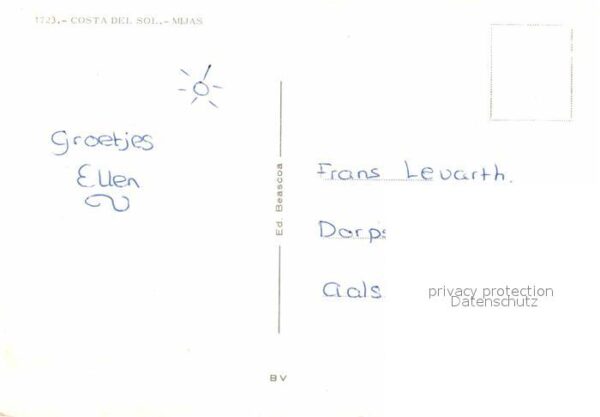 1723.- COSTA DEL SOL.- MIJAS
Groetjes
Ellen
Ed. Beascoa
Frans Levarth.
Dorps
Aals
privacy protection
Datenschutz
BV